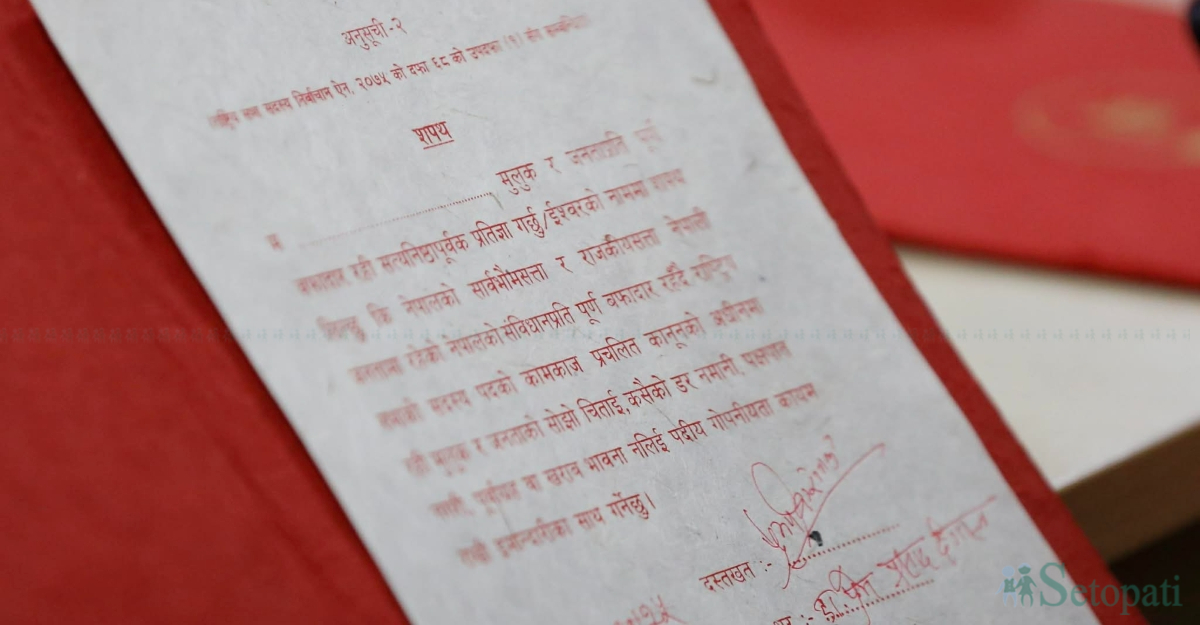 अनुसूची -२
राष्ट्रिय सभा सदस्य निर्वाचन ऐन, २०७५ को दफा ६८ को उपदफा (१) संग सम्बन्धित
शपथ
म .............................. मुलुक र जनताप्रति पूर्ण
बफादार रही सत्यनिष्ठापूर्वक प्रतिज्ञा गर्छु/ईश्वरको नाममा शपथ
लिन्छु कि नेपालको सार्वभौमसत्ता र राजकीयसत्ता नेपाली
जनतामा रहेको नेपालको संविधानप्रति पूर्ण वफादार रहँदै राष्ट्रिय
सभाको सदस्य पदको कामकाज प्रचलित कानूनको अधीनमा
रही मुलुक र जनताको सोझो चिताई, कसैको डर नमानी पक्षपात
नगरी, पूर्वाग्रह वा खराव भावना नलिई पदीय गोपनीयता कायम
राखी इमान्दारीका साथ गर्नेछु।
दस्तखत :-
Setopati